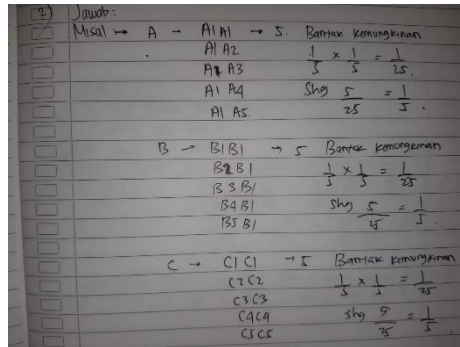 2) Jawab:
Misal → A → A1 A1 → 5. Bantak kemungkinan
A1 A2 1/5 × 1/5 = 1/25
A1 A3
A1 A4 Shg 5/25 = 1/5.
A1 A5.
B → B1 B1 → 5 Bantak kemungkinan
B2 B1 1/5 × 1/5 = 1/25
B3 B1
B4 B1 Shg 5/25 = 1/5.
B5 B1
C → C1 C1 → 5 Bantak kemungkinan
C2 C2 1/5 × 1/5 = 1/25
C3 C3
C4 C4 Shg 5/25 = 1/5
C5 C5